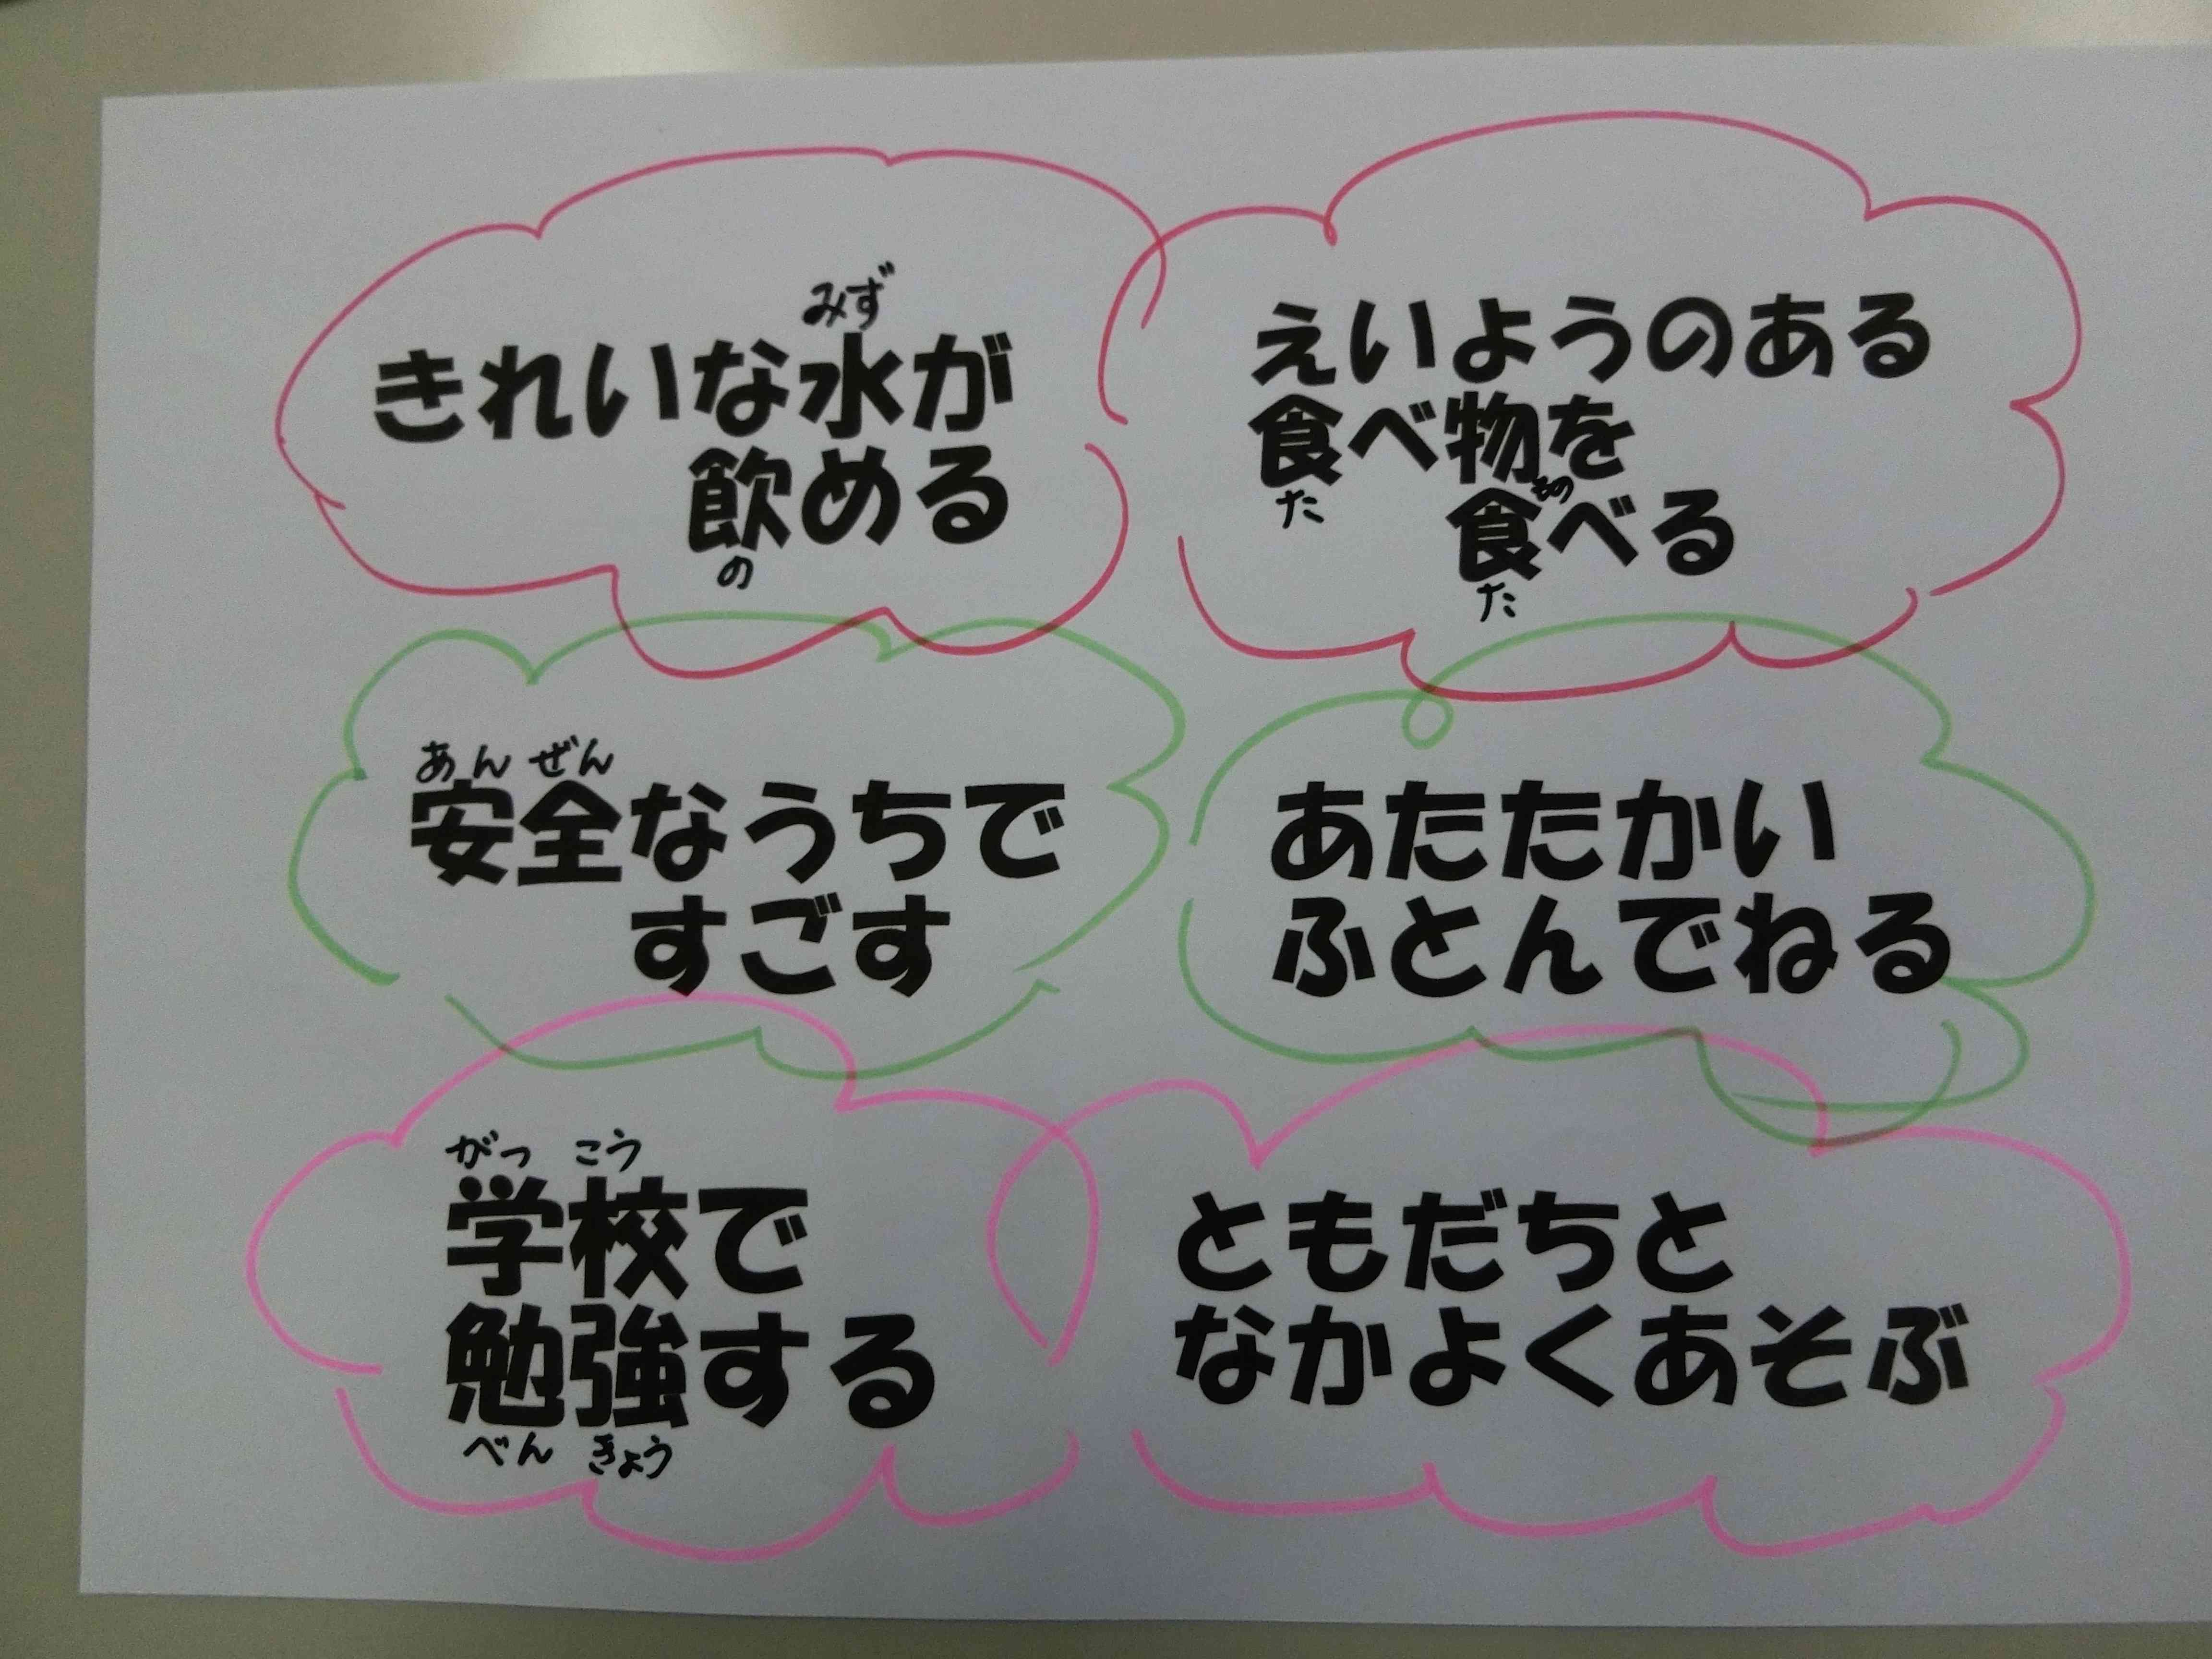 みず
きれいな水が
飲める
の
えいようのある
食べ物を
た もの
食べる
た
あん ぜん
安全なうちで
すごす
あたたかい
ふとんでねる
がっ こう
学校で
勉強する
べん きょう
ともだちと
なかよくあそぶ